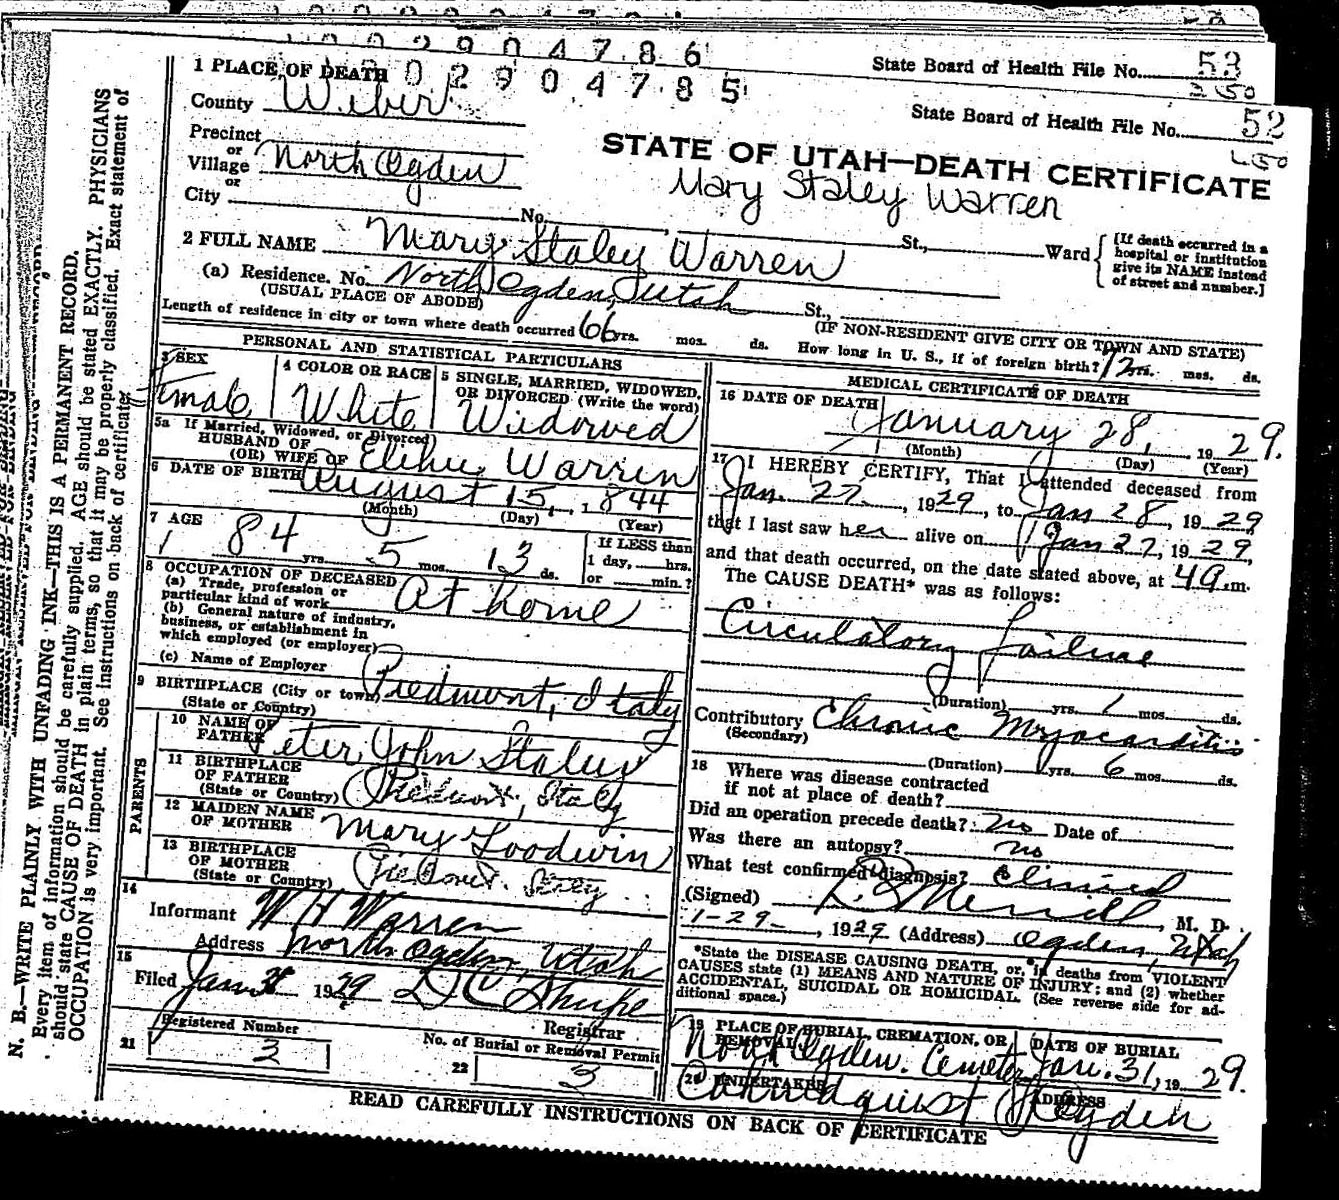 0 0 2 9 0 4 7 8 6
State Board of Health File No. 53
250
0 2 9 0 4 7 8 5
1 PLACE OF DEATH
State Board of Health File No. 52
County Weber
Precinct
or
Village North Ogden
or
City
STATE OF UTAH—DEATH CERTIFICATE
Mary Staley Warren
No. , St., Ward
[If death occurred in a
hospital or institution
give its NAME instead
of street and number.]
2 FULL NAME Mary Staley Warren
(a) Residence. No. North Ogden, Utah St.,
(USUAL PLACE OF ABODE)
(IF NON-RESIDENT GIVE CITY OR TOWN AND STATE)
Length of residence in city or town where death occurred 66 yrs. mos. ds. How long in U. S., if of foreign birth? 72 yrs. mos. ds.
PERSONAL AND STATISTICAL PARTICULARS
3 SEX
Female
4 COLOR OR RACE
White
5 SINGLE, MARRIED, WIDOWED,
OR DIVORCED (Write the word)
Widowed
5a If Married, Widowed, or Divorced
HUSBAND OF
(OR) WIFE OF Elihu Warren
6 DATE OF BIRTH August 15, 1844
(Month) (Day) (Year)
7 AGE
84 yrs. 5 mos. 13 ds.
If LESS than
1 day, hrs.
or min.?
8 OCCUPATION OF DECEASED
(a) Trade, profession or
particular kind of work At home
(b) General nature of industry,
business, or establishment in
which employed (or employer)
(c) Name of Employer
9 BIRTHPLACE (City or town) Piedmont, Italy
(State or Country)
PARENTS
10 NAME OF
FATHER Peter John Staley
11 BIRTHPLACE
OF FATHER
(State or Country) Piedmont, Italy
12 MAIDEN NAME
OF MOTHER Mary Goodwin
13 BIRTHPLACE
OF MOTHER
(State or Country) Piedmont. Italy
14
Informant W H Warren
Address North Ogden, Utah
15
Filed Jan 1929 D C Shupe
Registrar
Registered Number
21 2
No. of Burial or Removal Permit
22 3
MEDICAL CERTIFICATE OF DEATH
16 DATE OF DEATH
January 28, 1929.
(Month) (Day) (Year)
17 I HEREBY CERTIFY, That I attended deceased from
Jan. 22, 1929, to Jan 28, 1929
that I last saw her alive on Jan 27, 1929,
and that death occurred, on the date stated above, at 4 a.m.
The CAUSE DEATH* was as follows:
Circulatory Failure
(Duration) yrs. 1 mos. ds.
Contributory Chronic Myocarditis
(Secondary)
(Duration) yrs. 6 mos. ds.
18 Where was disease contracted
if not at place of death?
Did an operation precede death? no Date of
Was there an autopsy? no
What test confirmed diagnosis? Clinical
(Signed) Merrill, M. D.
1-29-, 1929 (Address) Ogden, Utah
*State the DISEASE CAUSING DEATH, or, in deaths from VIOLENT
CAUSES state (1) MEANS AND NATURE OF INJURY; and (2) whether
ACCIDENTAL, SUICIDAL OR HOMICIDAL. (See reverse side for ad-
ditional space.)
19 PLACE OF BURIAL, CREMATION, OR
REMOVAL
North Ogden. Cemetery
DATE OF BURIAL
Jan. 31, 1929.
20 UNDERTAKER
Lindquist
ADDRESS
Ogden
READ CAREFULLY INSTRUCTIONS ON BACK OF CERTIFICATE
N. B.—WRITE PLAINLY WITH UNFADING INK—THIS IS A PERMANENT RECORD.
Every item of information should be carefully supplied. AGE should be stated EXACTLY. PHYSICIANS
should state CAUSE OF DEATH in plain terms, so that it may be properly classified. Exact statement of
OCCUPATION is very important. See instructions on back of certificate.